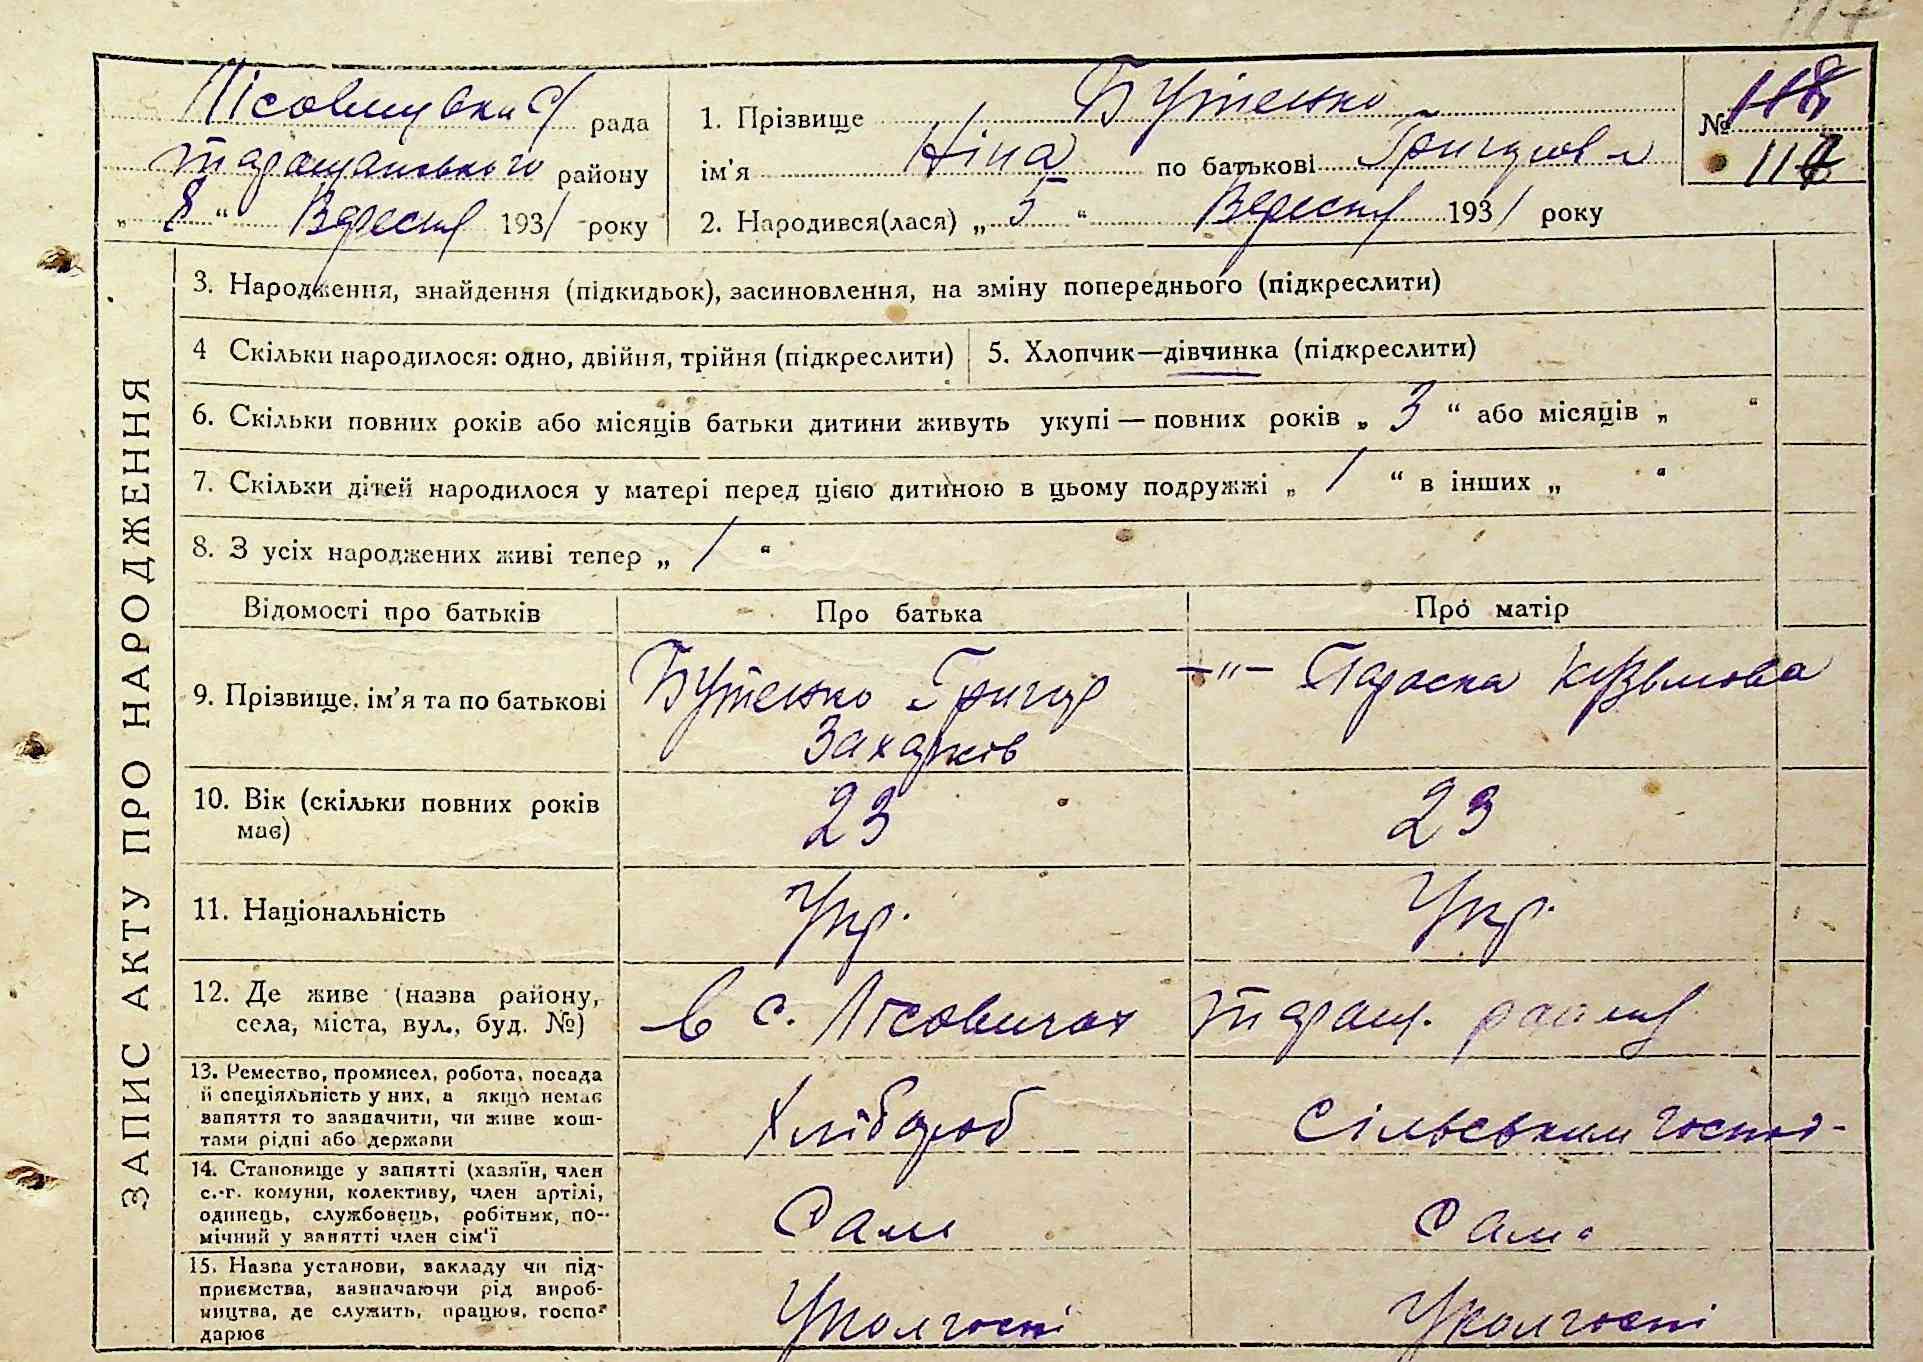 117
Лісовицька с/ рада
Таращанського району
„ 8 “ Вересня 1931 року
1. Прізвище Бутенко
ім'я Ніна по батькові Григорова
2. Народився(лася) „ 5 “ Вересня 1931 року
№ 118
117
ЗАПИС АКТУ ПРО НАРОДЖЕННЯ
3. Народження, знайдення (підкидьок), засиновлення, на зміну попереднього (підкреслити)
4 Скільки народилося: одно, двійня, трійня (підкреслити) 5. Хлопчик—дівчинка (підкреслити)
6. Скільки повних років або місяців батьки дитини живуть укупі — повних років „ 3 “ або місяців „ “
7. Скільки дітей народилося у матері перед цією дитиною в цьому подружжі „ 1 “ в інших „ “
8. З усіх народжених живі тепер „ 1 “
Відомості про батьків Про батька Про матір
9. Прізвище, ім'я та по батькові Бутенко Григор Захарків -"- Параска Кузьмова
10. Вік (скільки повних років має) 23 23
11. Національність Укр. Укр.
12. Де живе (назва району, села, міста, вул., буд. №) в с. Лісовичах Таращ. району
13. Ремество, промисел, робота, посада й спеціяльність у них, а якщо немає заняття то зазначити, чи живе коштами рідні або держави Хлібороб Сільським господ-
14. Становище у занятті (хазяїн, член с.-г. комуни, колективу, член артілі, одинець, службовець, робітник, помічний у занятті член сім'ї Сам Сама
15. Назва установи, закладу чи підприємства, зазначаючи рід виробництва, де служить, працює, господарює У колгоспі У колгоспі